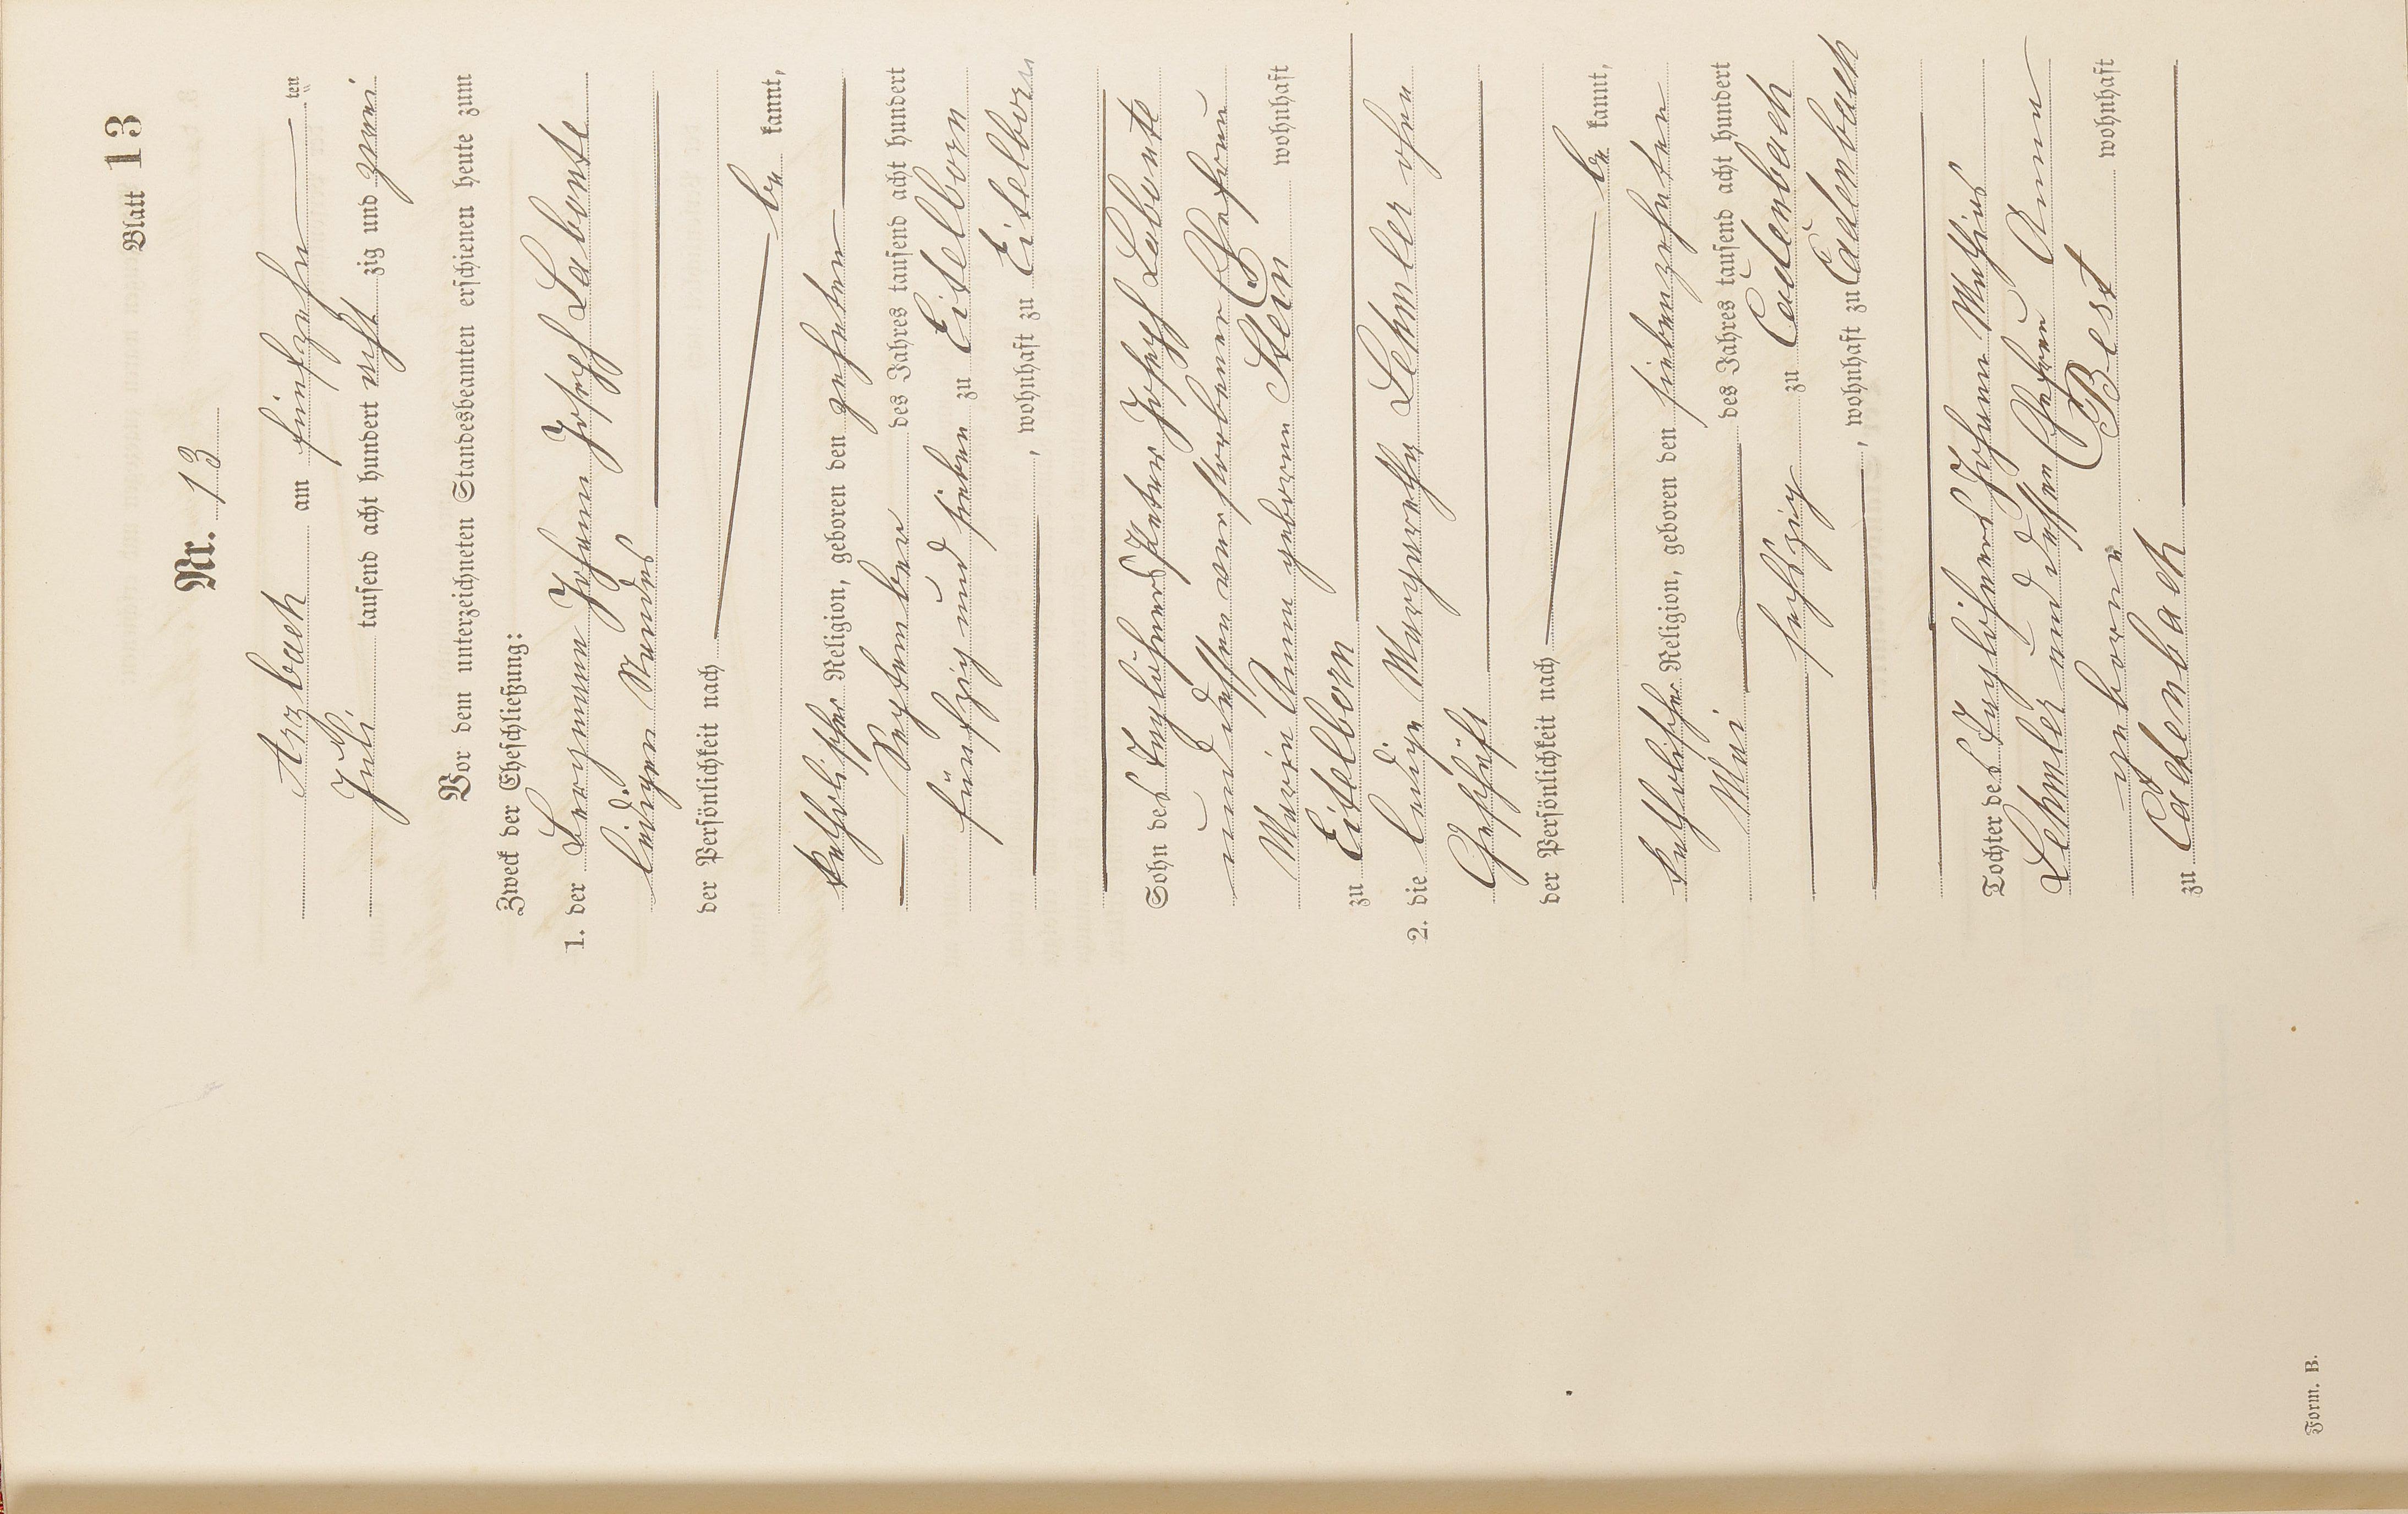 Blatt 13
Nr. 13
Arzbach am fünfzehn ten
Juli tausend acht hundert acht zig und zwei
Vor dem unterzeichneten Standesbeamten erschienen heute zum
Zweck der Eheschließung:
1. der Bergmann Johann Joseph Labonte
ledigen Standes
der Persönlichkeit nach
be kannt,
katholischer Religion, geboren den zehnten
September des Jahres tausend acht hundert
fünfzig und sieben zu Eitelborn
, wohnhaft zu Eitelborn
Sohn des Taglöhners Peter Joseph Labonte
und dessen verstorbener Ehefrau
Maria Anna geborene Stein wohnhaft
zu Eitelborn
2. die ledige Margaretha Lehmler ohne
Geschäft
der Persönlichkeit nach
be kannt,
katholischer Religion, geboren den siebenzehnten
Mai des Jahres tausend acht hundert
sechszig zu Cadenbach
, wohnhaft zu Cadenbach
Tochter des Taglöhners Johann Mathias
Lehmler und dessen Ehefrau Anna
geborene Best wohnhaft
zu Cadenbach
Form. B.